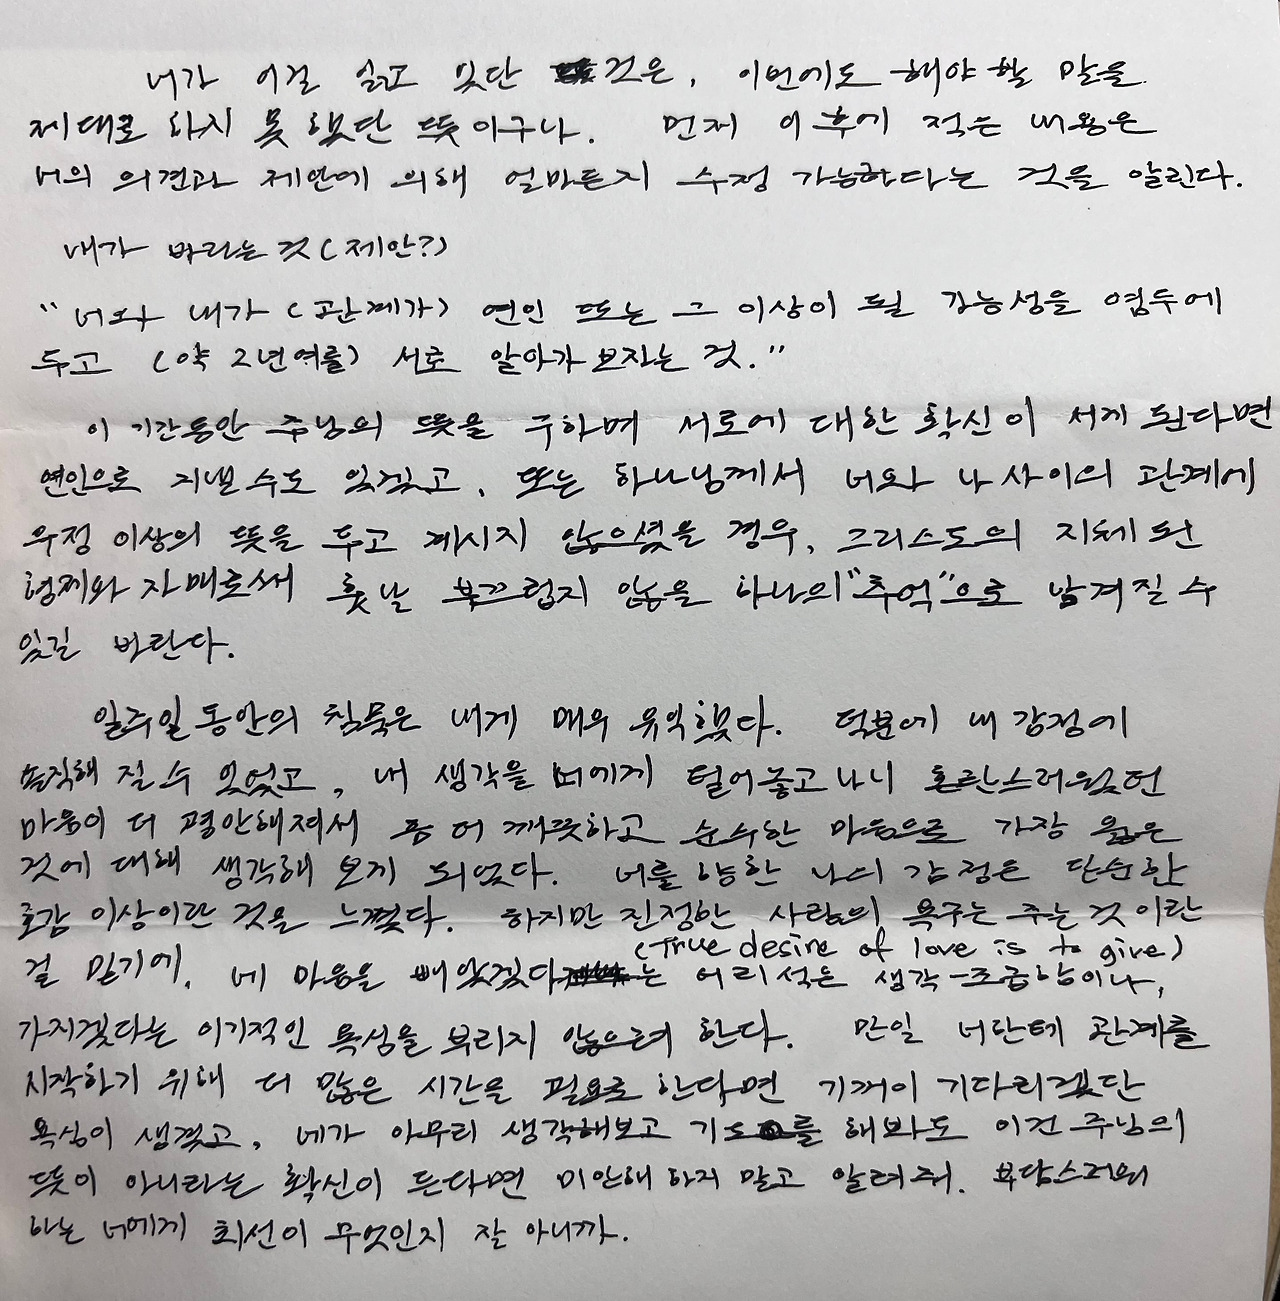 너가 이걸 읽고 있단 것은, 이번에도 해야할 말을
제대로 하지 못 했단 뜻이구나. 먼저 이 후에 적은 내용은
너의 의견과 제안에 의해 얼마든지 수정 가능하다는 것을 알린다.
내가 바라는 것(제안?)
"너와 내가 (관계가) 연인 또는 그 이상이 될 가능성을 염두에
두고 (약 2년여를) 서로 알아가보자는 것."
이 기간동안 주님의 뜻을 구하며 서로에 대한 확신이 서게 된다면
연인으로 지낼 수도 있겠고, 또는 하나님께서 너와 나 사이의 관계에
우정 이상의 뜻을 두고 계시지 않으셨을 경우, 그리스도의 지체 된
형제와 자매로써 훗날 부끄럽지 않을 하나의 "추억"으로 남겨질 수
있길 바란다.
일주일 동안의 침묵은 내게 매우 유익했다. 덕분에 내 감정에
솔직해 질 수 있었고, 내 생각을 너에게 털어놓고 나니 혼란스러웠던
마음이 더 평안해져서 좀 더 깨끗하고 순수한 마음으로 가장 옳은
것에 대해 생각해 보게 되었다. 너를 향한 나의 감정은 단순한
호감 이상이란 것을 느꼈다. 하지만 진정한 사랑의 욕구는 주는 것이란
(True desire of love is to give)
걸 믿기에, 네 마음을 빼앗겠다는 어리석은 생각-조급함이나,
가지겠다는 이기적인 욕심을 부리지 않으려 한다. 만일 너한테 관계를
시작하기 위해 더 많은 시간을 필요로 한다면 기꺼이 기다리겠단
욕심이 생겼고, 네가 아무리 생각해보고 기도를 해봐도 이건 주님의
뜻이 아니라는 확신이 든다면 미안해 하지 말고 알려줘. 부담스러워
하는 너에게 최선이 무엇인지 잘 아니까.